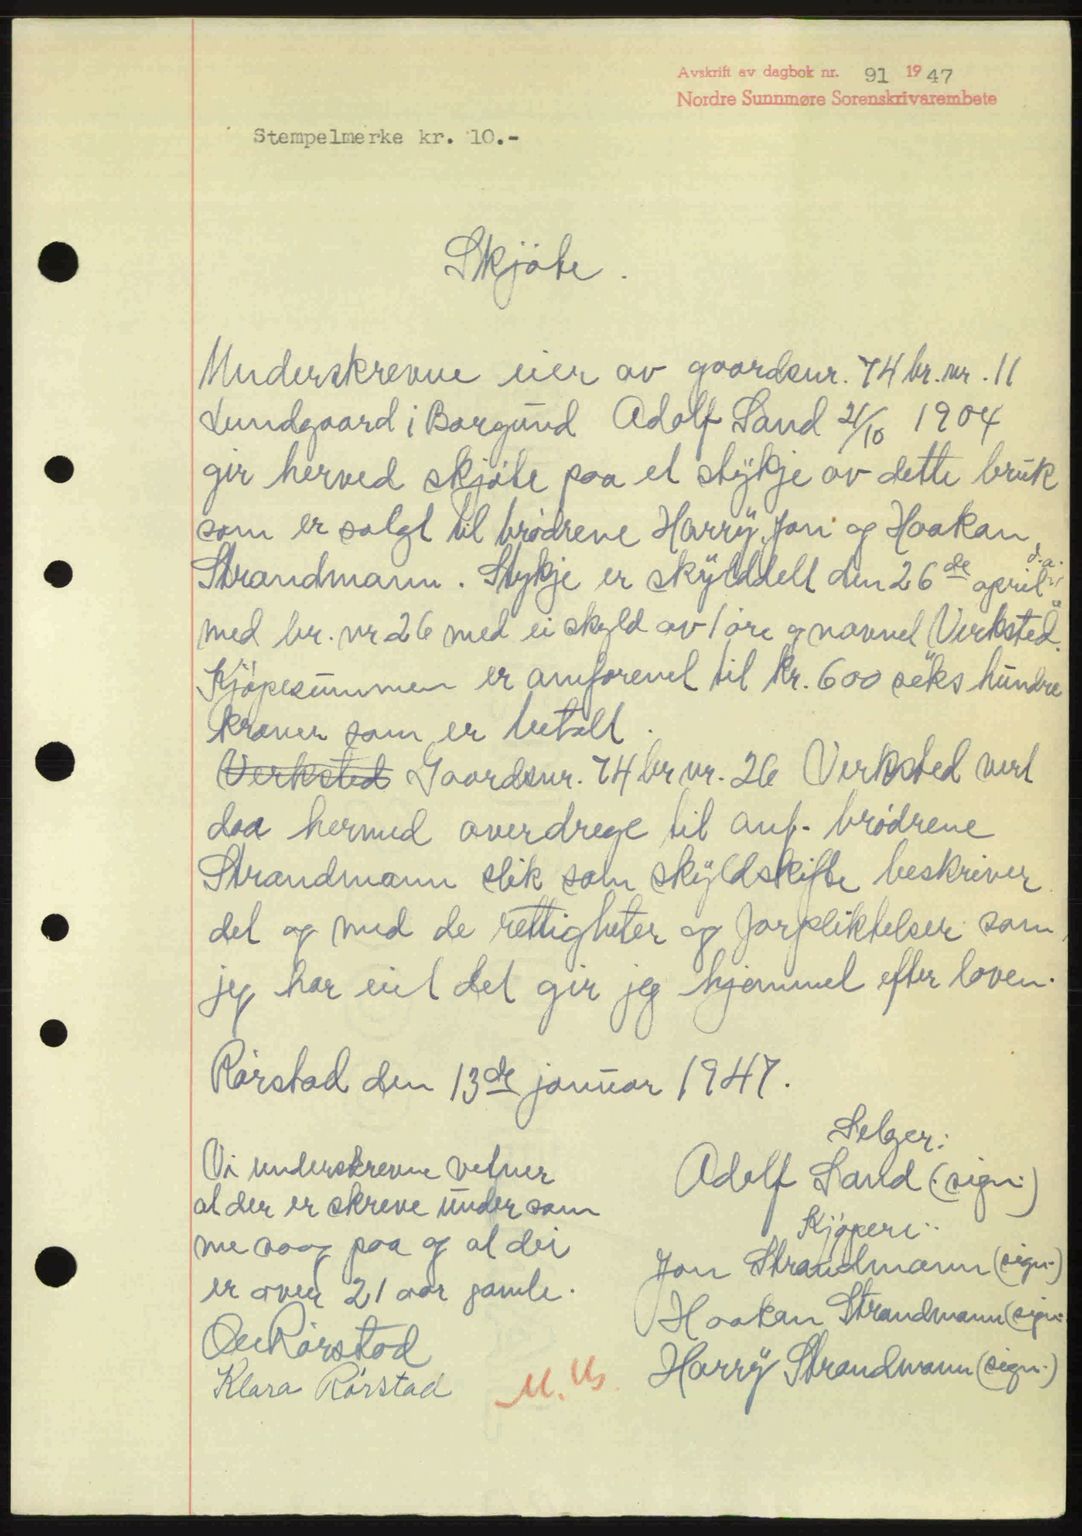 Avskrift av dagbok nr. 91 1947
Nordre Sunnmøre Sorenskrivarembete
Stempelmerke kr. 10.-
Skjöte.
Underskrevne eier av gaardsnr. 74 br. nr. 11
Lundgaard i Borgund Adolf Sand 21/10 1904
gir herved skjöte paa et stykje av dette bruk
som er solgt til brödrene Harry, Jon og Haakan
Strandmann. Stykje er skylddelt den 26de april d.a.
med br. nr 26 med ei skyld av 1 öre og navnet "Verksted".
Kjöpesummen er omforenet til kr. 600 seks hundre
kroner som er betalt.
Verksted Gaardsnr. 74 br nr. 26 Verksted vert
daa hermed overdrege til anf. brödrene
Strandmann slik som skyldskifte beskriver
det og med de rettigheter og forpliktelser som
jeg har eiet det gir jeg hjemmel efter loven.
Rörstad den 13de januar 1947.
Selger:
Adolf Sand (sign.)
Kjöpere:
Jon Strandmann (sign.)
Haakan Strandmann (sign.
Harry Strandmann (sign.)
Vi underskrevne vetner
at der er skreve under som
me saag paa og at dei
er over 21 aar gamle.
Rörstad
Klara Rörstad